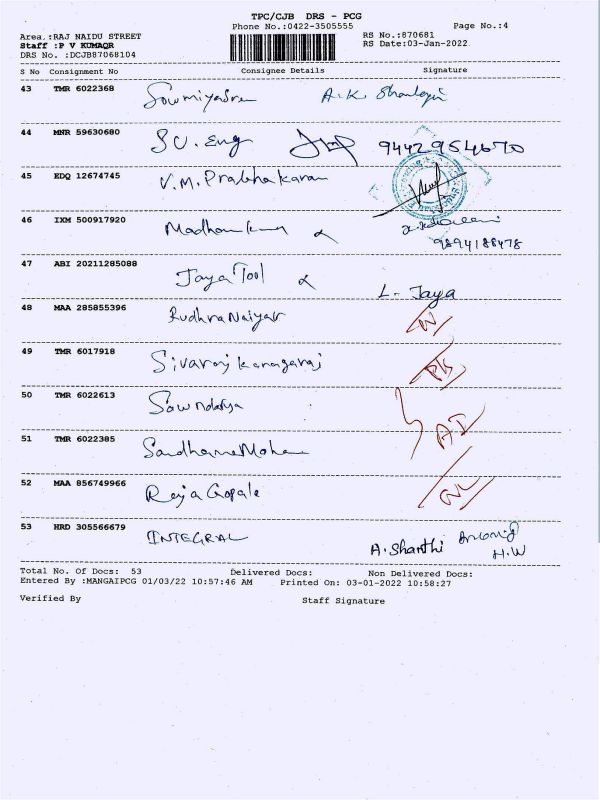 TPC/CJB DRS - PCG
Phone No.:0422-3505555 Page No.:4
Area :RAJ NAIDU STREET RS No.:870681
Staff :P V KUMAQR RS Date:03-Jan-2022
DRS No. :DCJB87068104
S No Consignment No Consignee Details Signature
43 TMR 6022368 Sowmiyasree A.K.
44 MNR 59630680 SU. Eng 9442954670
45 EDQ 12674745 V.M. Prabhakaran
46 IXM 500917920 Madhan
9894188478
47 ABI 20211285088 Jaya Tool L. Jaya
48 MAA 285855396 Rudhra Naiyar
49 TMR 6017918 Sivaraj Kanagaraj
50 TMR 6022613 Sowndarya
51 TMR 6022385
52 MAA 856749966 Raja Gopale
53 HRD 305566679 INTEGRAL A. Sharthi
H.W
Total No. Of Docs: 53 Delivered Docs: Non Delivered Docs:
Entered By :MANGAIPCG 01/03/22 10:57:46 AM Printed On: 03-01-2022 10:58:27
Verified By Staff Signature